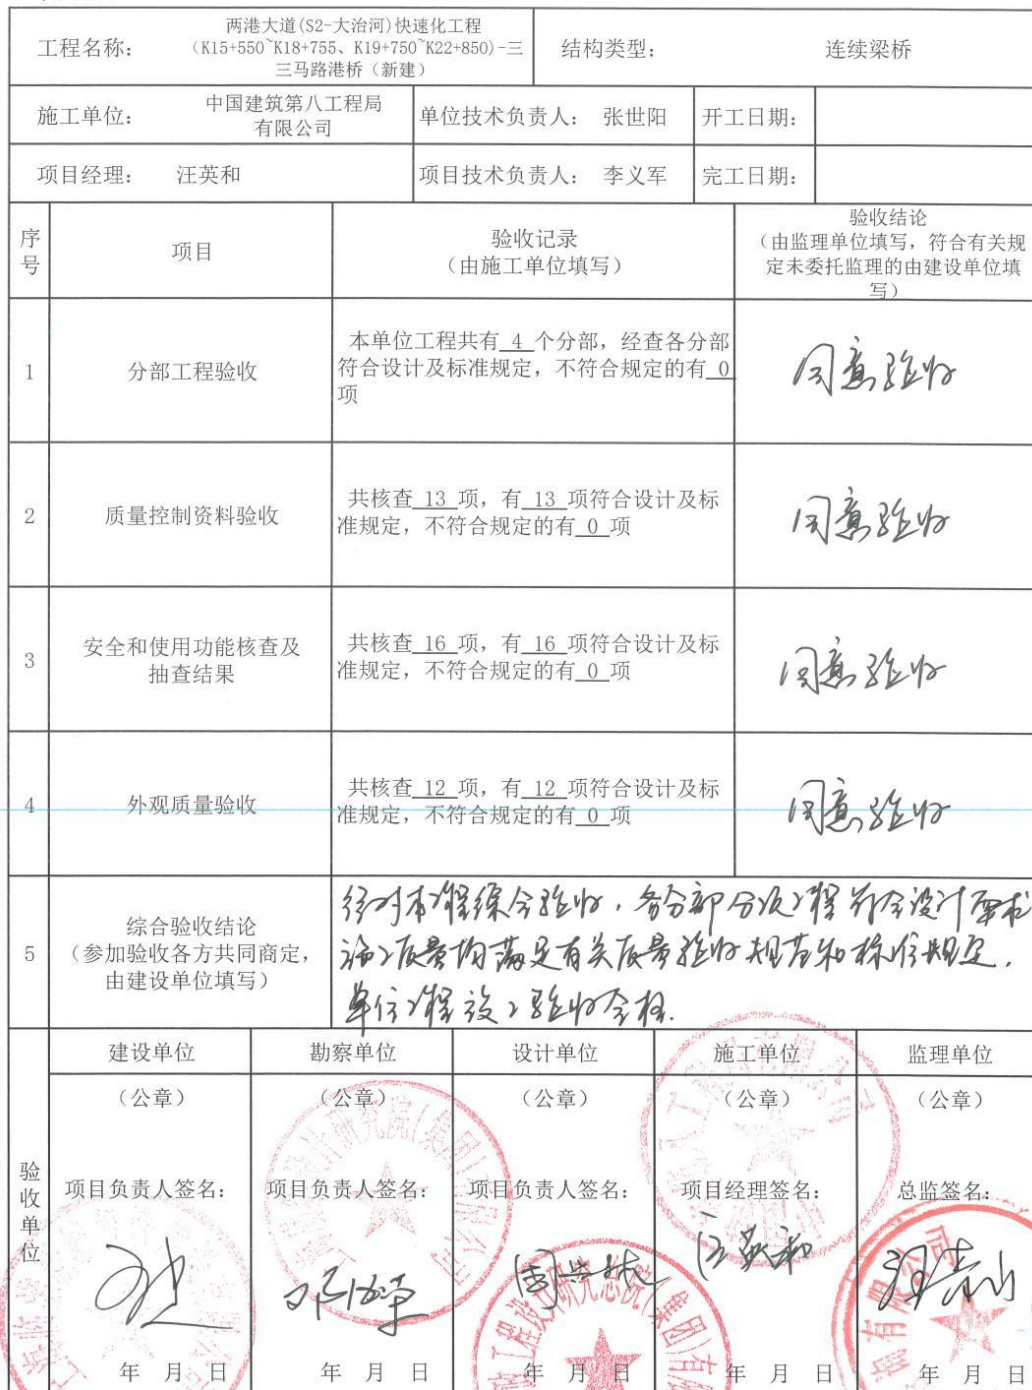 工程名称：
两港大道(S2-大治河)快速化工程
（K15+550~K18+755、K19+750~K22+850)-三
三马路港桥（新建）
结构类型：
连续梁桥
施工单位：
中国建筑第八工程局
有限公司
单位技术负责人： 张世阳
开工日期：
项目经理： 汪英和
项目技术负责人： 李义军
完工日期：
序
号
项目
验收记录
（由施工单位填写）
验收结论
（由监理单位填写，符合有关规
定未委托监理的由建设单位填
写）
1
分部工程验收
本单位工程共有 4 个分部，经查各分部
符合设计及标准规定，不符合规定的有 0
项
同意验收
2
质量控制资料验收
共核查 13 项，有 13 项符合设计及标
准规定，不符合规定的有 0 项
同意验收
3
安全和使用功能核查及
抽查结果
共核查 16 项，有 16 项符合设计及标
准规定，不符合规定的有 0 项
同意验收
4
外观质量验收
共核查 12 项，有 12 项符合设计及标
准规定，不符合规定的有 0 项
同意验收
5
综合验收结论
（参加验收各方共同商定，
由建设单位填写）
经对本工程综合验收，各分部分项工程符合设计要求
施工质量均满足有关质量验收规范和标准规定，
单位工程竣工验收合格.
验
收
单
位
建设单位
勘察单位
设计单位
施工单位
监理单位
（公章）
（公章）
（公章）
（公章）
（公章）
项目负责人签名：
项目负责人签名：
项目负责人签名：
项目经理签名：
总监签名：
汪英和
年 月 日
年 月 日
年 月 日
年 月 日
年 月 日